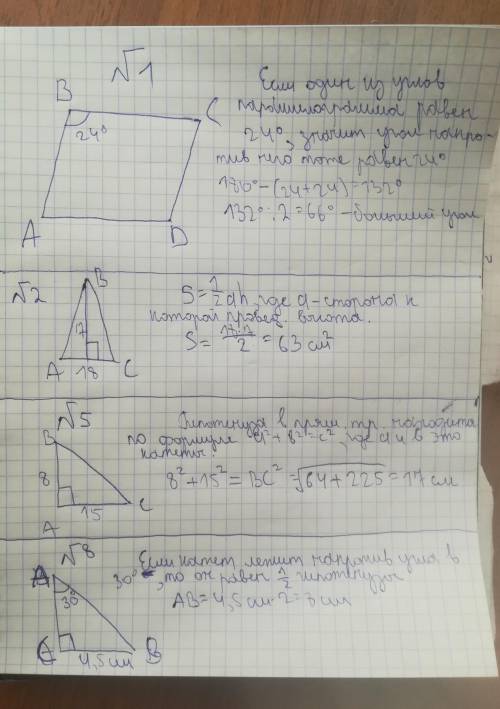 √1
B
C
24°
A
D
Если один из углов
параллелограмма равен
24°, значит угол напро-
тив него тоже равен 24°
180°-(24+24)=132°
132°:2=66° - больший угол
√2
B
7
A
18
C
S=1/2ah, где a - сторона к
которой провед. высота.
S= /2 = 63 см²
√5
B
8
A
15
C
Гипотенуза в прям. тр. находится
по формуле a²+b²=c², где a и b это
катеты.
8²+15²=BC²=√64+225=17 см
√8
A
30°
C
4,5 см
B
Если катет лежит напротив угла в
30°, то он равен 1/2 гипотенузы
AB=4,5см·2= см